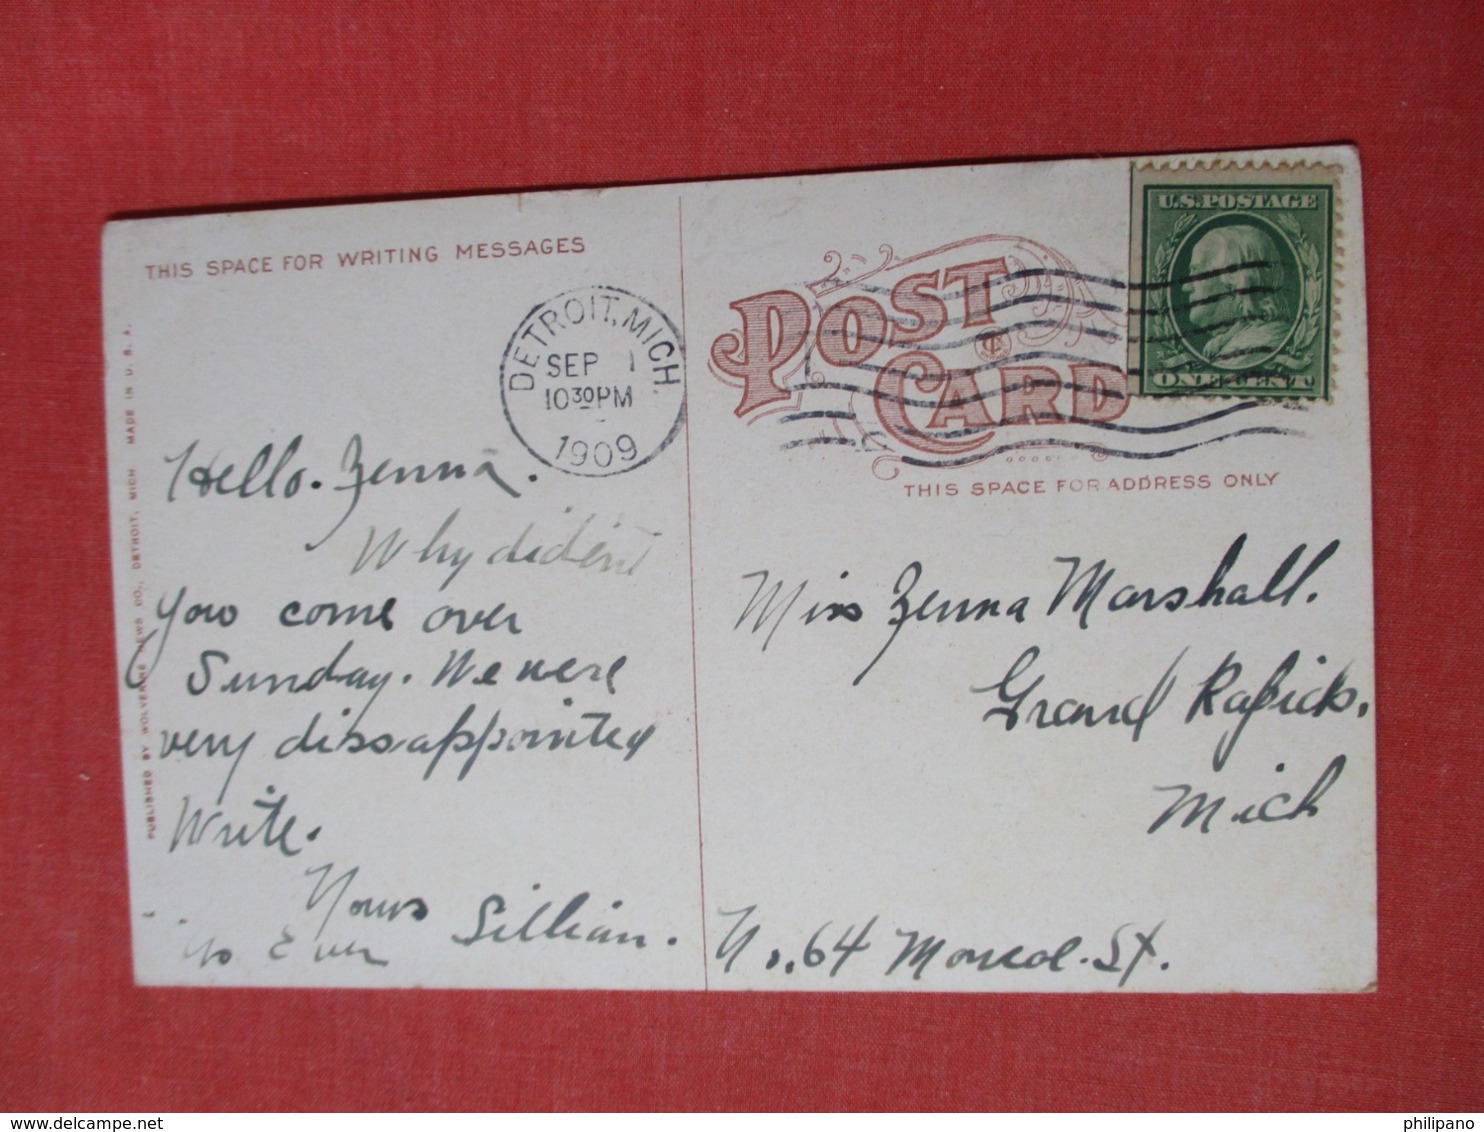 THIS SPACE FOR WRITING MESSAGES
DETROIT, MICH.
SEP 1
10 30 PM
1909
Hello. Zenna.
Why did'ent
you come over
Sunday. We were
very dissappointed
Write.
Yours
Ever Lillian.
PUBLISHED BY WOLVERINE NEWS CO., DETROIT, MICH. MADE IN U. S. A.
U.S. POSTAGE
ONE CENT
POST CARD
THIS SPACE FOR ADDRESS ONLY
Miss Zenna Marshall.
Grand Rapids.
Mich
No. 64 St.
delcampe.net
philipano